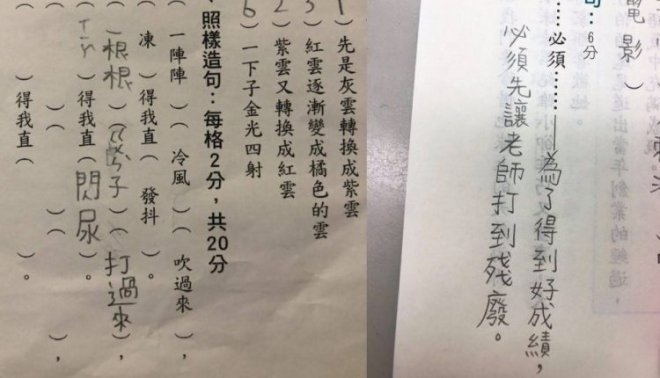 1）先是灰雲轉換成紫雲
3）紅雲逐漸變成橘色的雲
2）紫雲又轉換成紅雲
6）一下子金光四射
、照樣造句：每格2分，共20分
（一陣陣）（冷風）（吹過來），
（凍）得我直（發抖）。
（一根根）（子）（打過來），
（）得我直（閃尿）。
（）（）（），
（）得我直（）。
電影）
句：6分
……必須……為了得到好成績，
必須先讓老師打到殘廢。